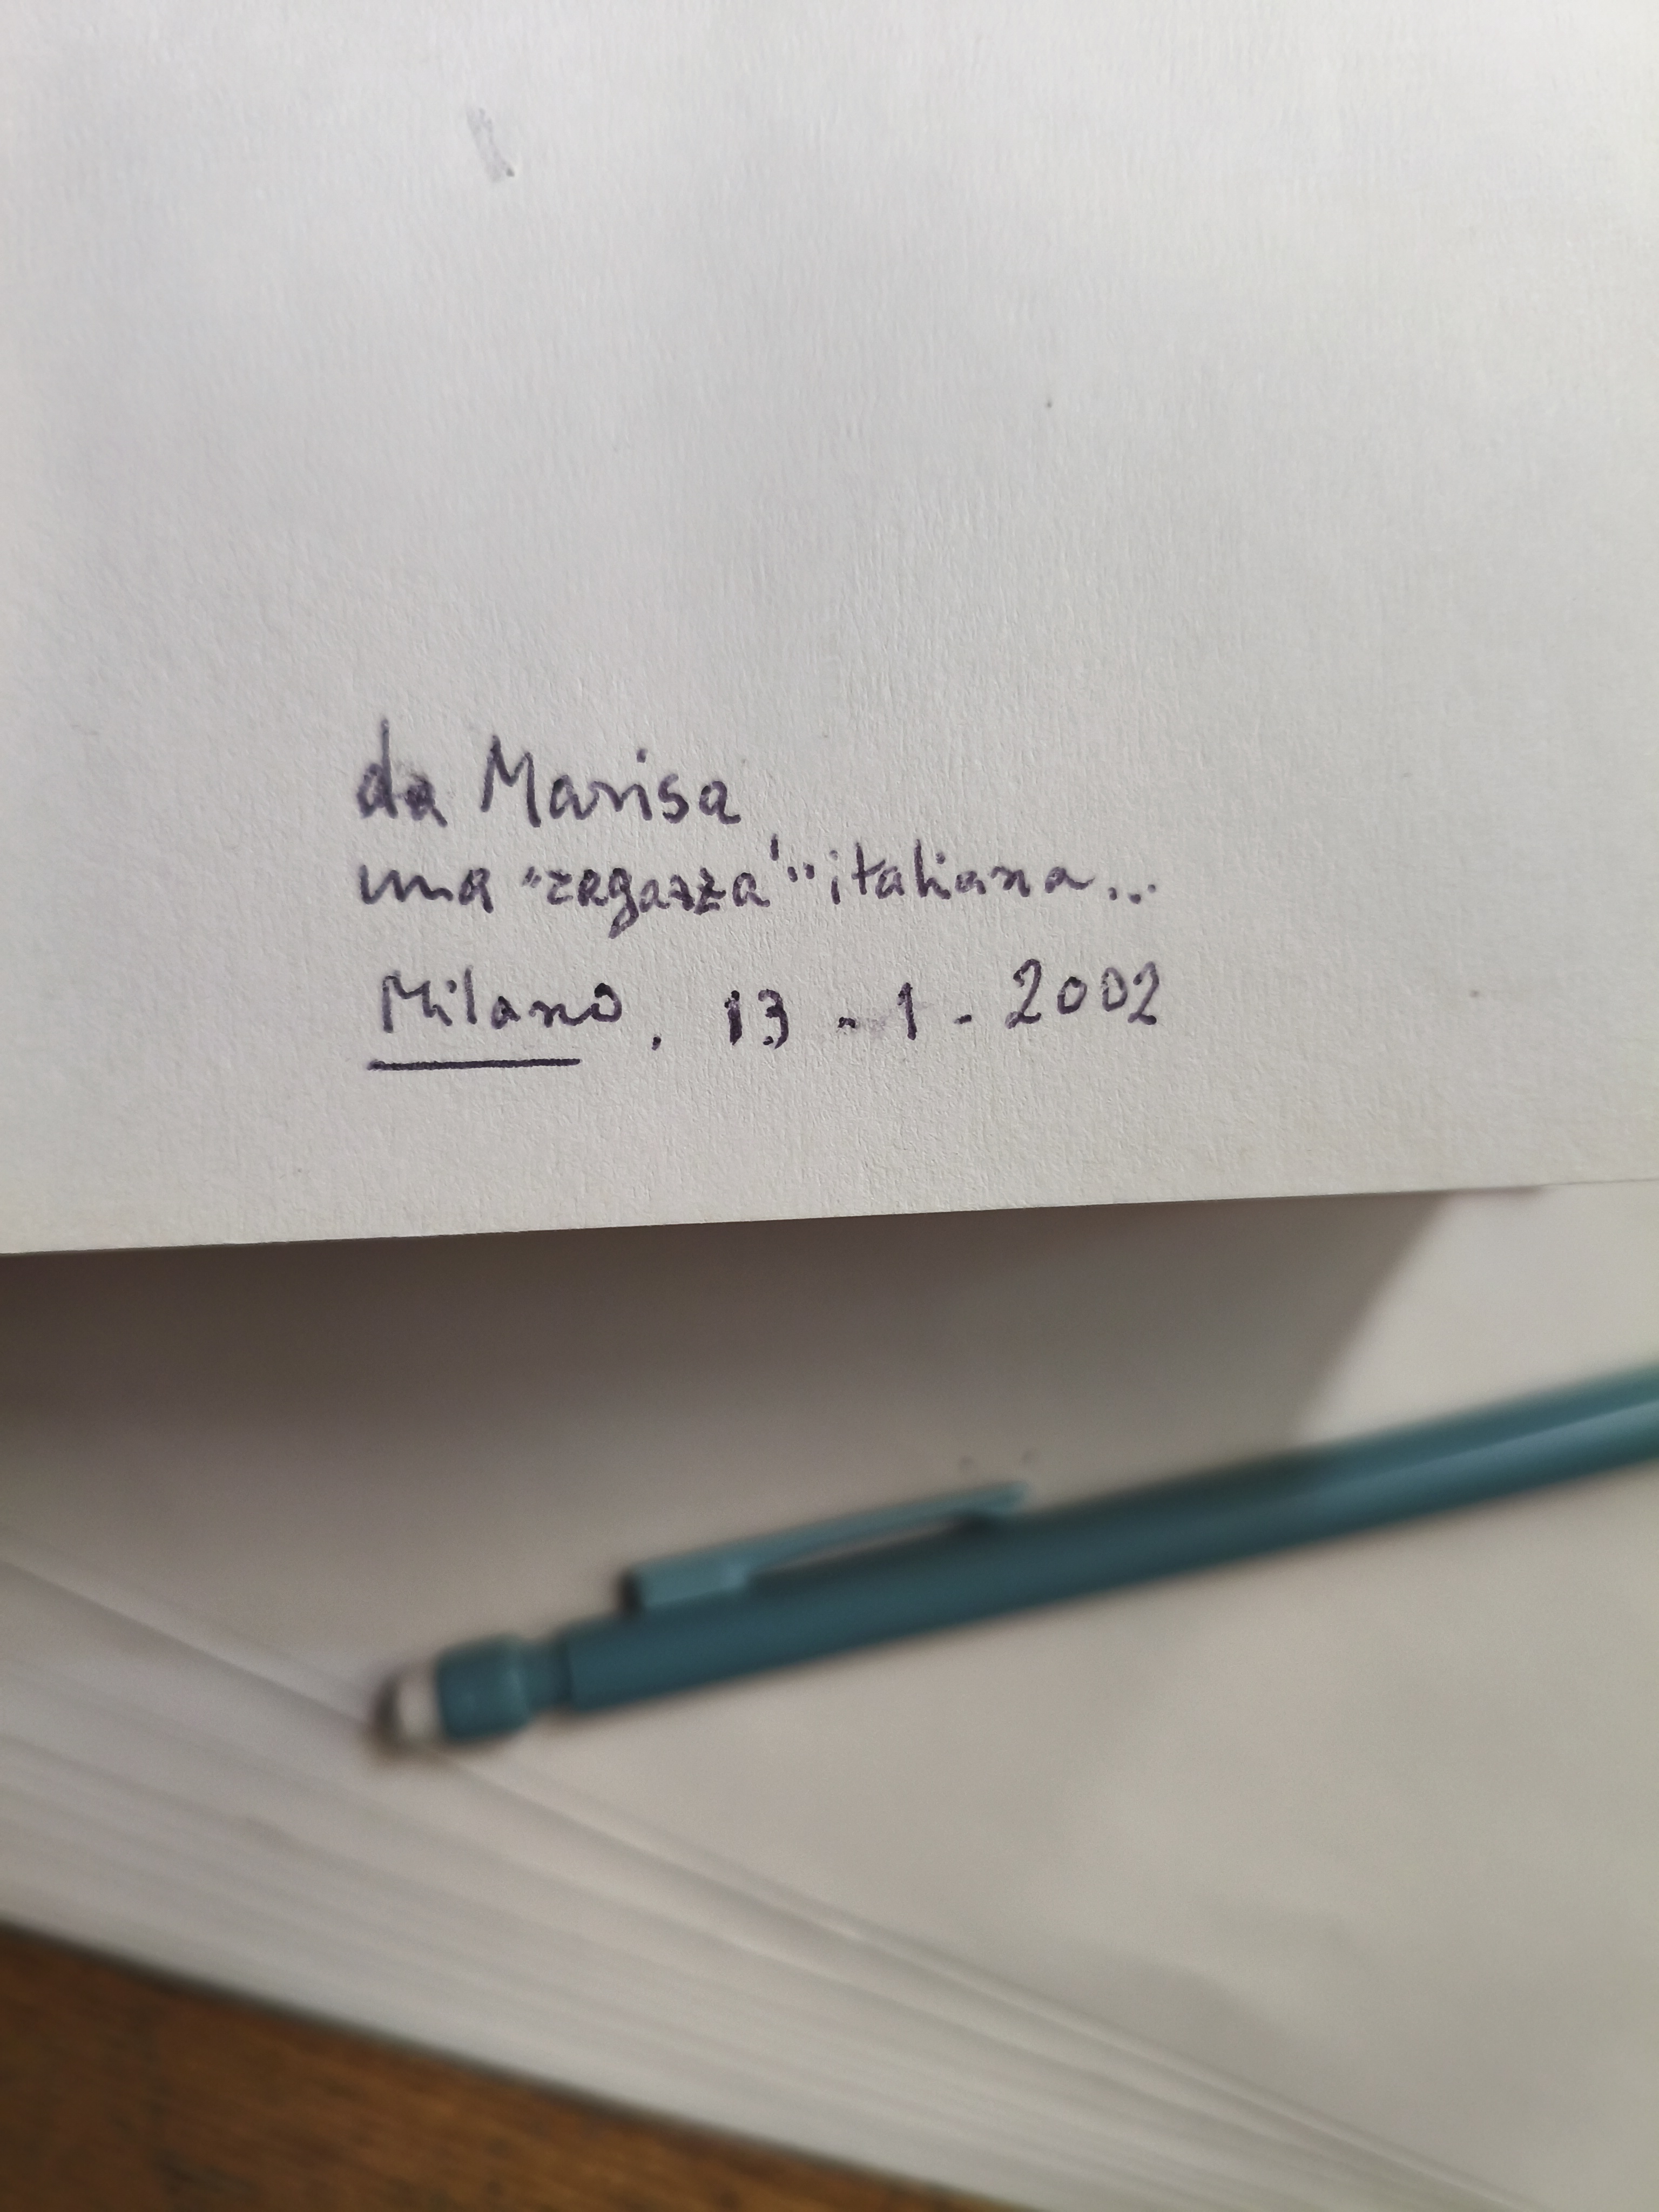 da Marisa
una "ragazza" italiana...
Milano, 13-1-2002